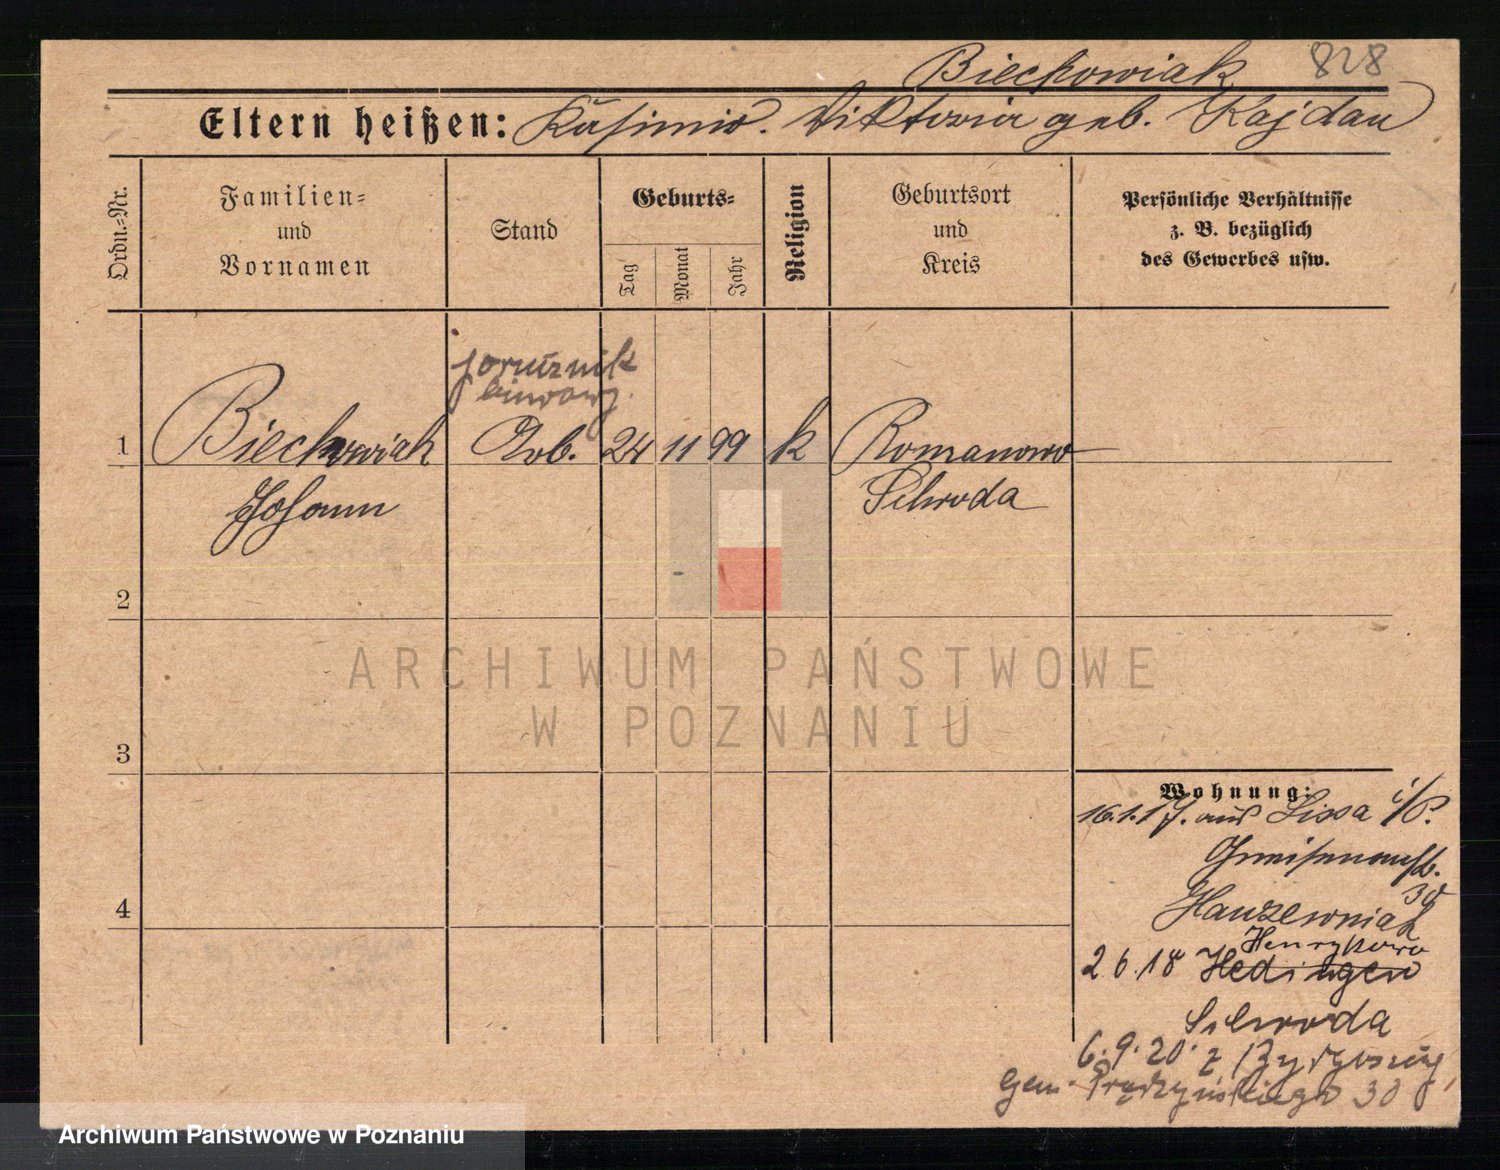 Bieckowiak 828
Eltern heißen: Kasimir. Viktoria geb. Kajdan
Ordn.=Nr.
Familien=
und
Vornamen
Stand
Geburts=
Tag
Monat
Jahr
Religion
Geburtsort
und
Kreis
Persönliche Verhältnisse
z. B. bezüglich
des Gewerbes usw.
porucznik
1 Bieckowiak Arb. 24 11 99 k Romanowo
Johann Schroda
2
3
4
Wohnung:
16.1.17. aus Lissa i/P.
Gneisenaustr.
30
Hauzewniak
Henrykowo
2 6.18 Hedingen
Schroda
6.9.20. z Bydgoszczy
Gen. Prądzyńskiego 30
ARCHIWUM PAŃSTWOWE
W POZNANIU
Archiwum Państwowe w Poznaniu